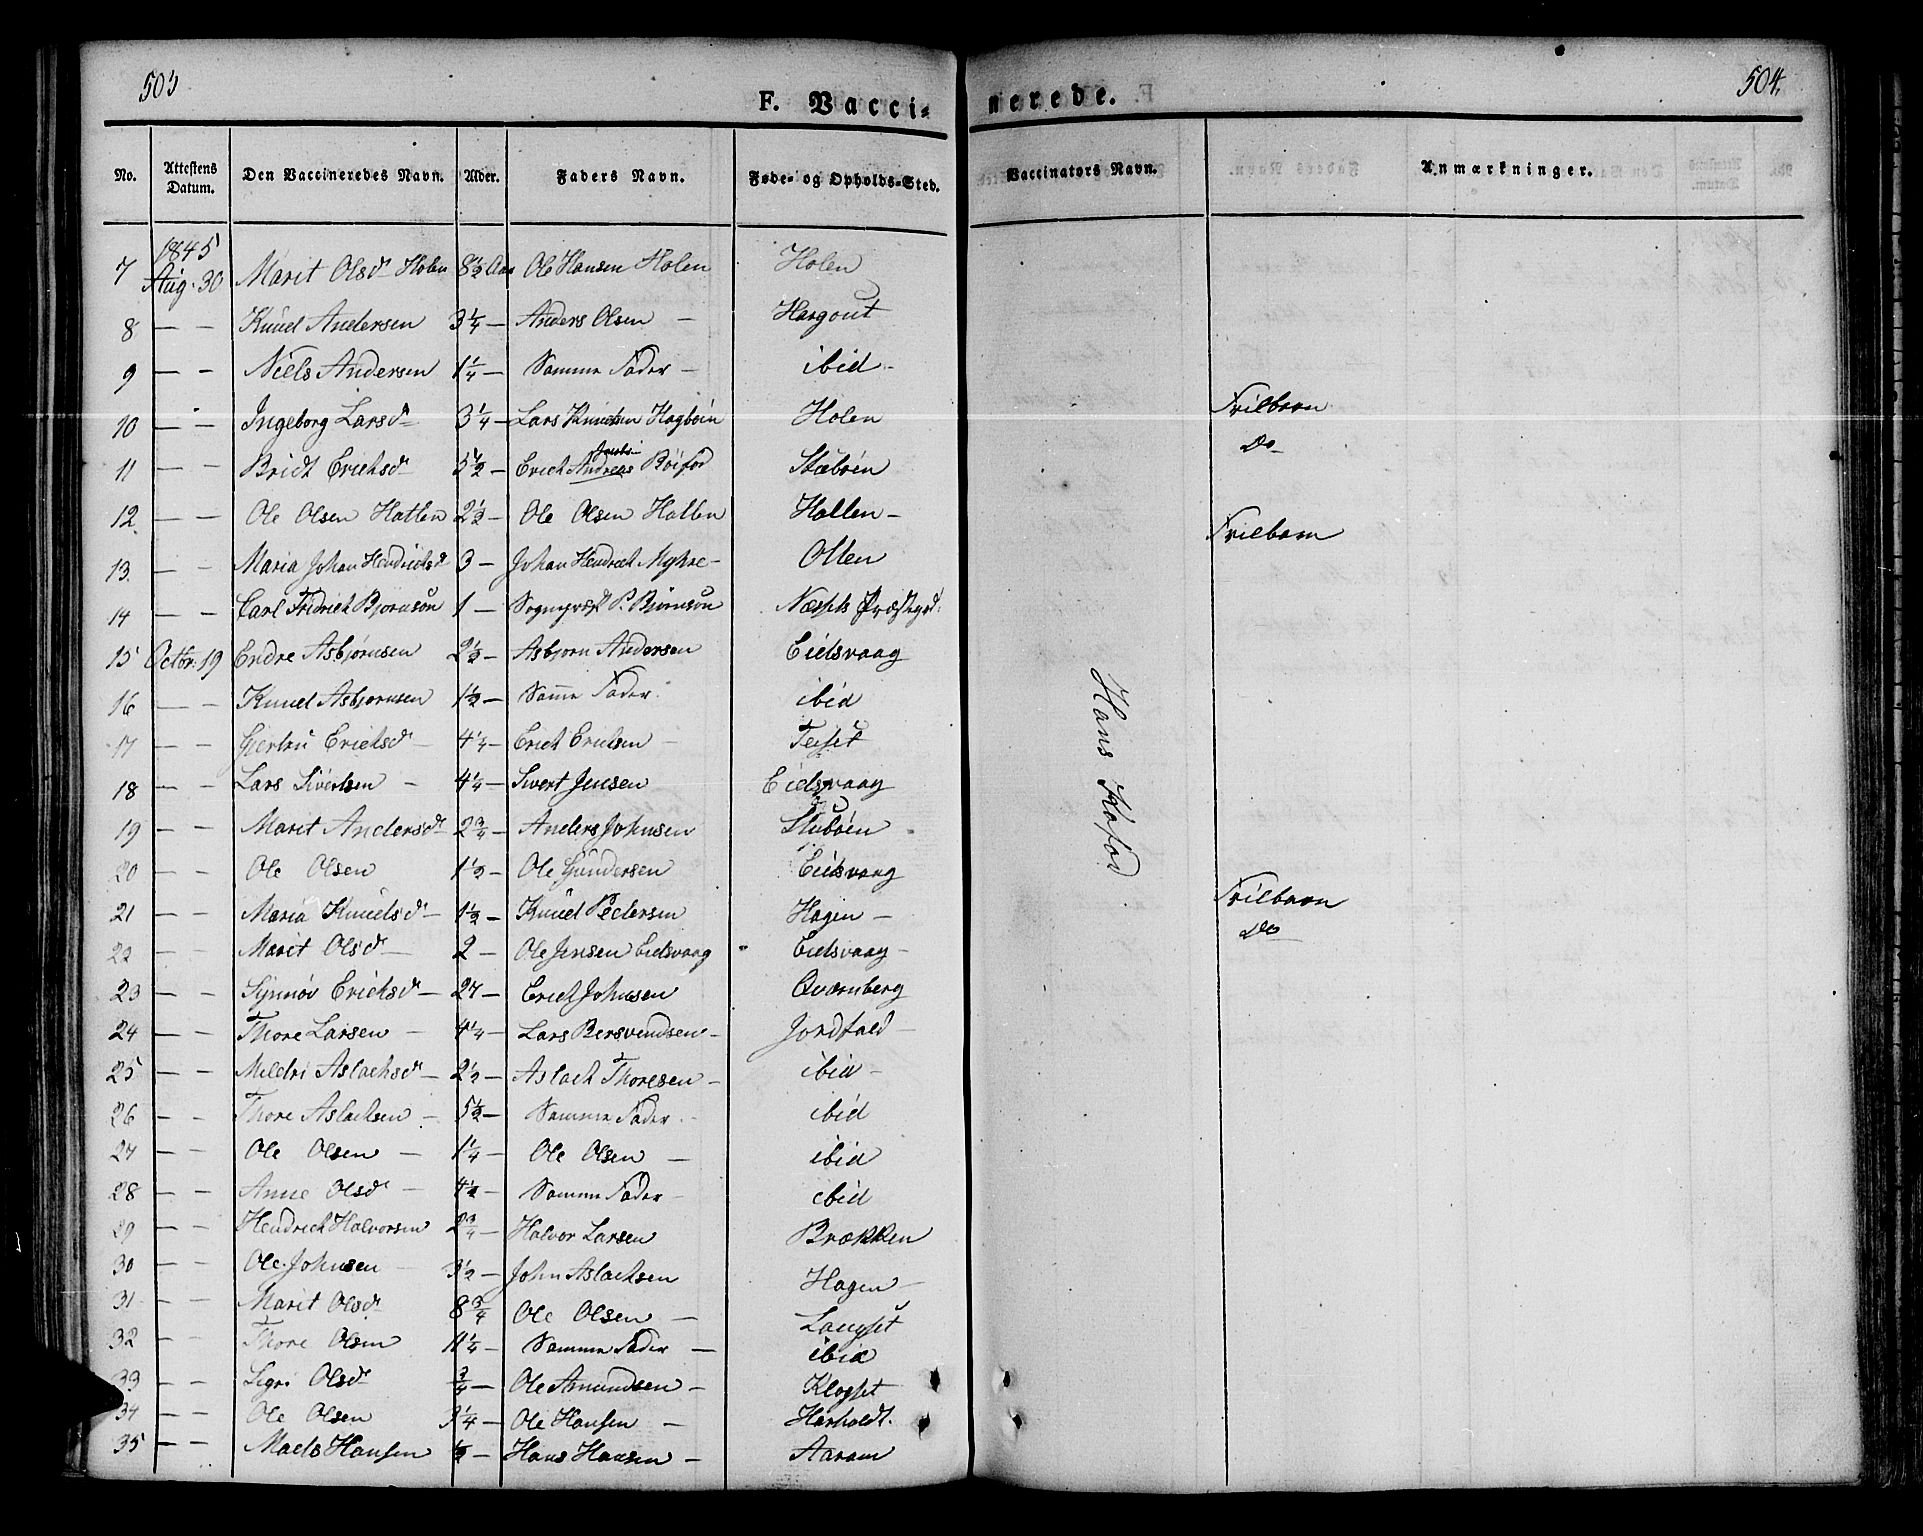 503
504.
F. Vacci-
nerede.
No. Attestens Datum. Den Vaccineredes Navn. Alder. Faders Navn. Føde- og Opholds-Sted. Vaccinators Navn. Anmærkninger.
1845
7 Aug. 30 Marit Olsd Holen 8½ Aar Ole Hansen Holen Holen
8 — — Knud Andersen 3¼ — Anders Olsen — Hargout
9 — — Niels Andersen 1¼ — Samme Fader — ibid —
10 — — Ingeborg Larsd 3¼ — Lars Knudsen Hagbøin Holen Frilbarn
11 — — Bridt Erichsd 5½ — Erich Andreas Røifod Stubøen Do
12 — — Ole Olsen Hatlen 2½ — Ole Olsen Hallen Hallen — Frilbarn
13 — — Maria Johan Hendrichsd 3 — Johan Hendrich Myhre — Otten
14 — — Carl Fridrich Bjørnson 1 — Sognepræst P. Bjørnson Næssets Præstegd.
15 Octbr. 19 Endre Asbjørnsen 2½ — Asbjørn Andersen Eidsvaag
16 — — Knud Asbjørnsen 1½ — Samme Fader. ibid
17 — — Gjertru Erichsd — 4¼ — Erich Erichsen — Teiset
18 — — Lars Sivertsen — 4¼ — Sivert Jensen Eidsvaag
19 — — Marit Andersd 2¾ — Anders Johnsen Stubøen
20 — — Ole Olsen 1½ — Ole Gundersen Eidsvaag
21 — — Maria Knudsd — 1½ — Knud Pedersen Hagen — Frilbarn
22 — — Marit Olsd — 2 — Ole Jensen Eidsvaag Eidsvaag — Do
23 — — Synnøv Erichsd — 27 — Erich Johnsen Qværnberg
24 — — Thore Larsen — 4¼ — Lars Bersvendsen — Jordfald —
25 — — Mildri Aslachsd — 2½ — Aslach Thoresen — ibid —
26 — — Thore Aslachsen — 5½ — Samme Fader — ibid
27 — — Ole Olsen — 1¼ — Ole Olsen — ibid
28 — — Anne Olsd — 4½ — Samme Fader — ibid
29 — — Hendrich Halvorsen 2¾ — Halvor Larsen Brækken
30 — — Ole Johnsen — 3½ — John Aslachsen Hagen —
31 — — Marit Olsd 8¾ Ole Olsen — Langset
32 — — Thore Olsen 11¼ — Samme Fader — ibid
33 — — Sigri Olsd ¾ — Ole Amundsen — Klogset
34 — — Ole Olsen 3¼ — Ole Hansen — Harholdt.
35 — — Mads Hansen ½ — Hans Hansen — Aaram
Hans Kofod